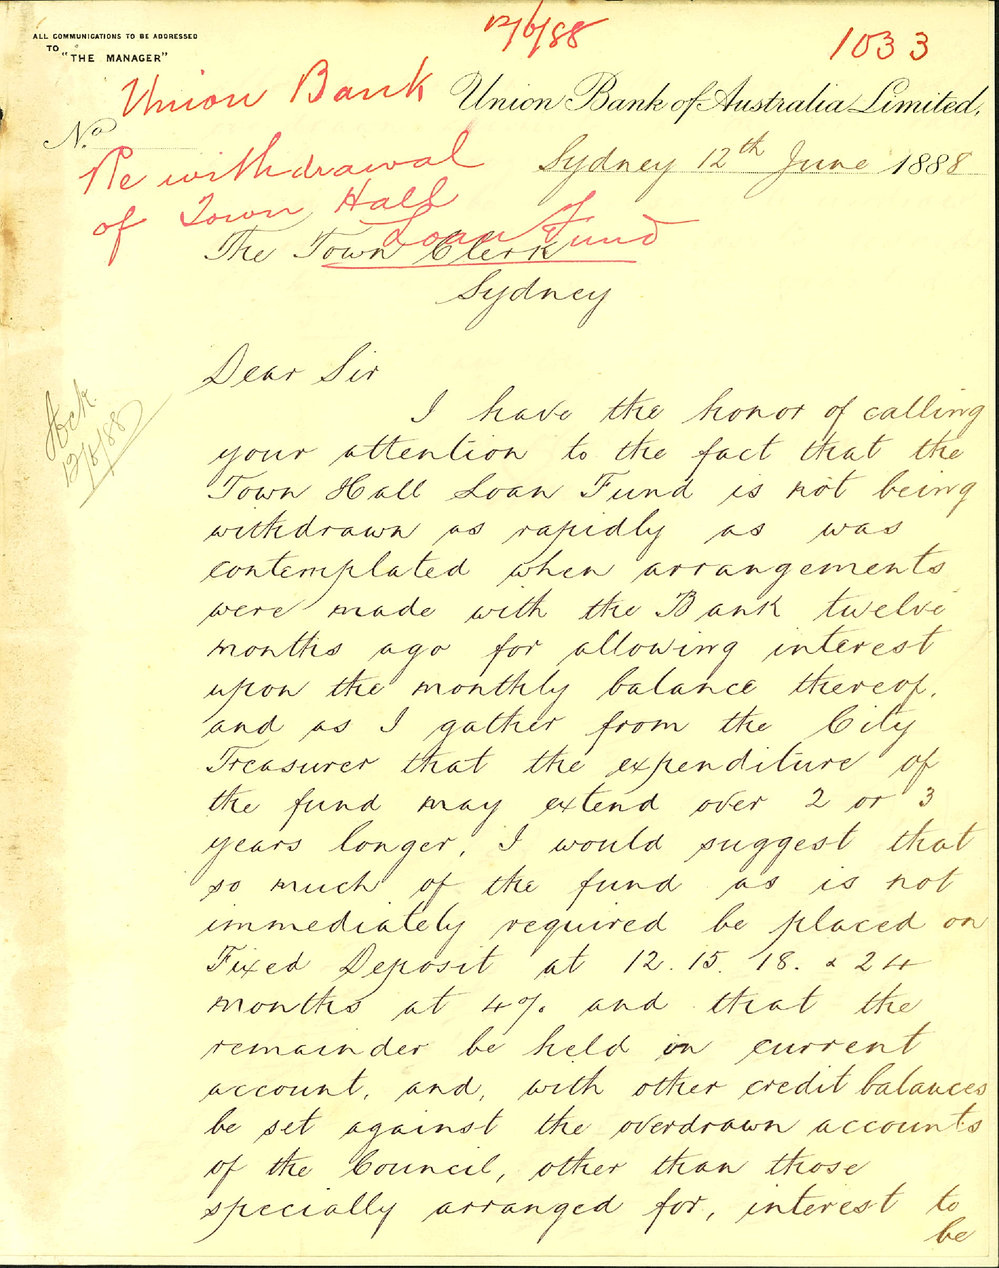 ALL COMMUNICATIONS TO BE ADDRESSED
TO
"THE MANAGER"
12/6/88
1033
Union Bank
Union Bank of Australia Limited.
No.
Re withdrawal
of Town Hall
Loan Fund
Sydney 12th June 1888
The Town Clerk
Sydney
Dear Sir
Ack.
12/6/88
I have the honor of calling
your attention to the fact that the
Town Hall Loan Fund is not being
withdrawn as rapidly as was
contemplated when arrangements
were made with the Bank twelve
months ago for allowing interest
upon the monthly balance thereof,
and as I gather from the City
Treasurer that the expenditure of
the fund may extend over 2 or 3
years longer, I would suggest that
so much of the fund as is not
immediately required be placed on
Fixed Deposit at 12. 15. 18. & 24
months at 4%. and that the
remainder be held on current
account, and, with other credit balances
be set against the overdrawn accounts
of the Council, other than those
specially arranged for, interest to
be